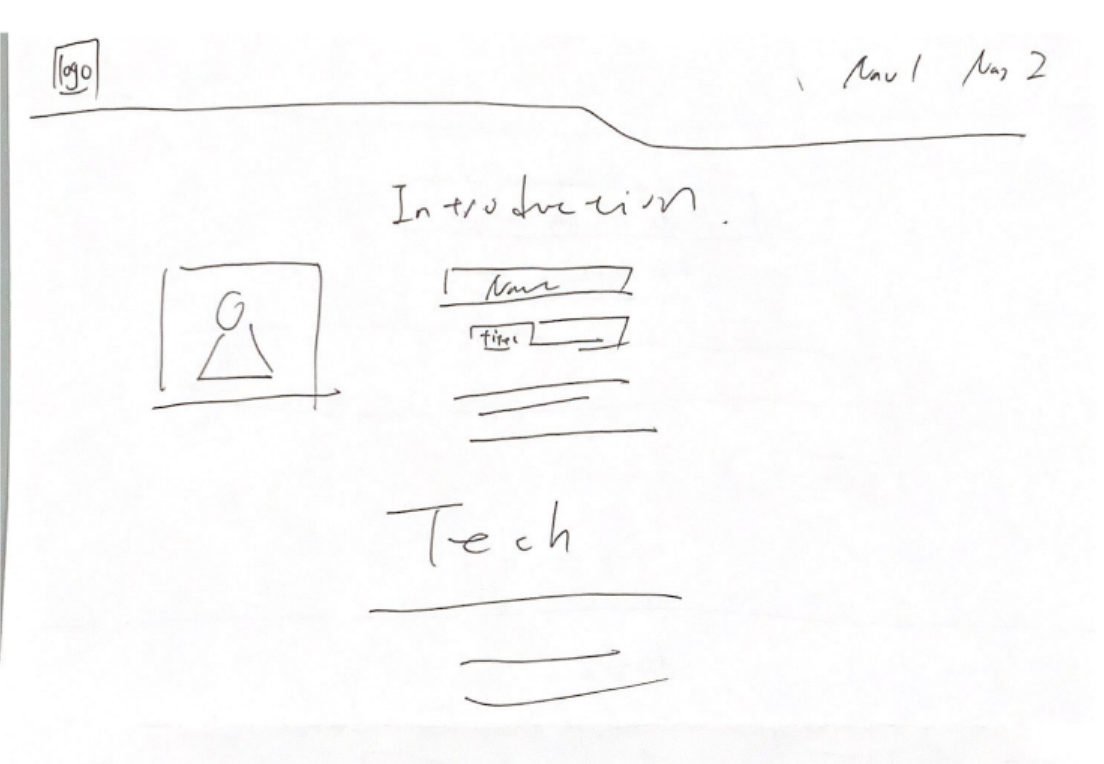 logo
Nav 1 Nav 2
Introduction.
Name
title
Tech